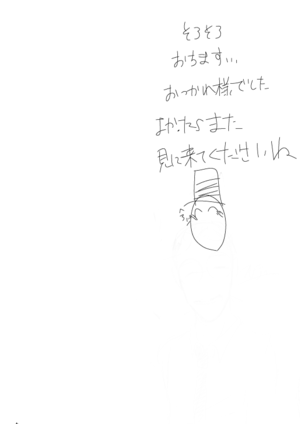 そろそろ
おちますい、
おつかれ様でした
よかたらまた
見に来てくださいね